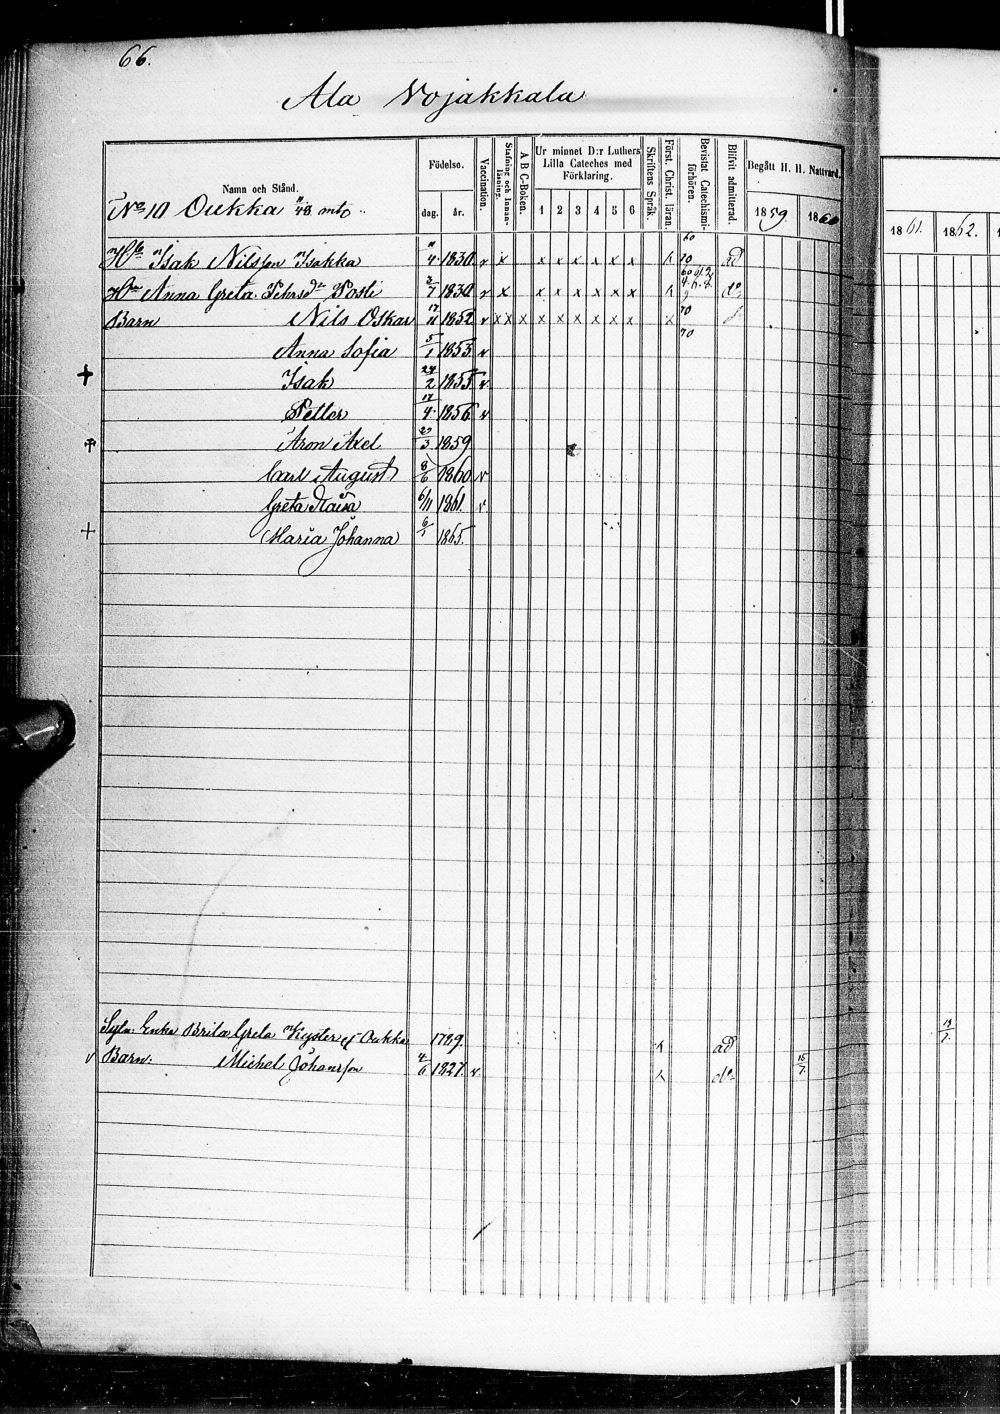 66.
Ala Vojakkala
Namn och Stånd.
Födelse.
dag. år.
Vaccination.
Stafning och Innanläsning.
A B C-Boken.
Ur minnet D:r Luthers Lilla Cateches med Förklaring.
1 2 3 4 5 6
Skriftens Språk.
Först. Christ. läran.
Bevistat Catechismiförhören.
Blifvit admitterad.
Begått H. H. Nattvard.
1859 1860
1861. 1862.
No 10 Oukka mto
Isak Nilsson Isakka 11/4 1830 v x x x x x x x ad
Anna Greta Pehrsdr Posti 3/7 1830 v x x x x x x x do
Barn Nils Oskar 17/11 1852 v x x x x x x x x x x
Anna Sofia 5/1 1853 v
Isak 24/2 1855 v
Petter 17/4 1856 v
Aron Axel 23/3 1859
Carl August 8/6 1860 v
Greta Kaisa 6/11 1861. v
Maria Johanna 6/1 1865.
Enka Brita Greta Kyster Oukka 1789. ad
Barn: Michel Johansson 4/6 1827. v. do